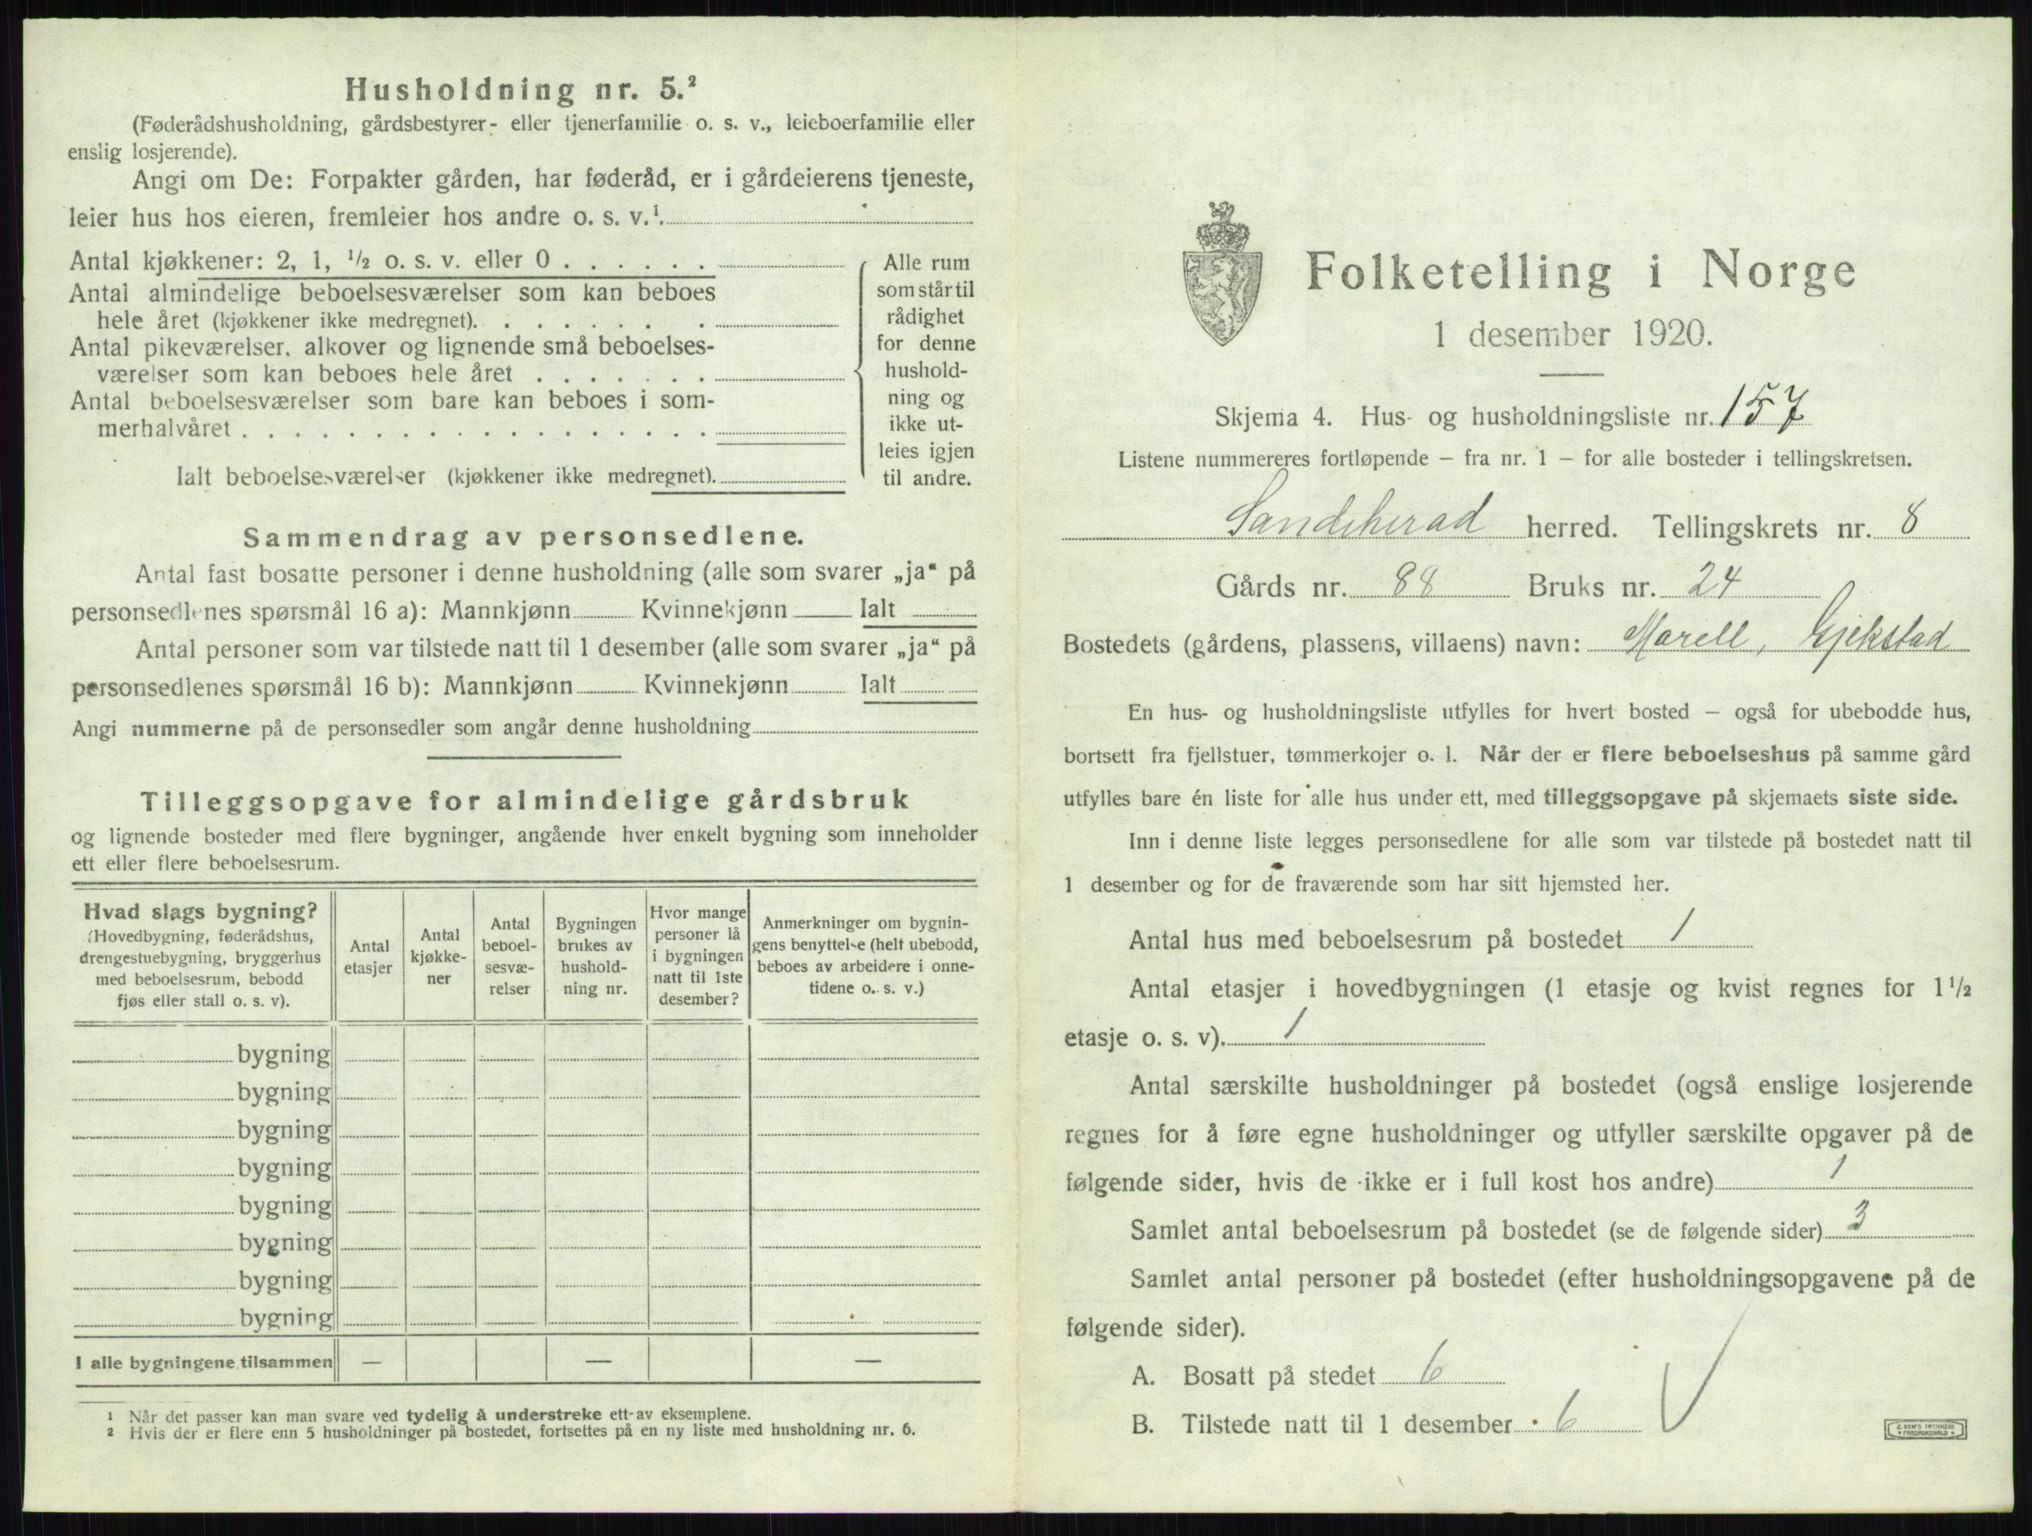 Husholdning nr. 5.²
(Føderådshusholdning, gårdsbestyrer- eller tjenerfamilie o. s. v., leieboerfamilie eller
enslig losjerende).
Angi om De: Forpakter gården, har føderåd, er i gårdeierens tjeneste,
leier hus hos eieren, fremleier hos andre o. s. v.¹.
Antal kjøkkener: 2, 1, ½ o. s. v. eller 0 . . . . . .
Antal almindelige beboelsesværelser som kan beboes
hele året (kjøkkener ikke medregnet). . . . . . . .
Antal pikeværelser, alkover og lignende små beboelses-
værelser som kan beboes hele året . . . . . . .
Antal beboelsesværelser som bare kan beboes i som-
merhalvåret . . . . . . . . . . . . . . . . . .
Ialt beboelsesværelser (kjøkkener ikke medregnet).
Alle rum
som står til
rådighet
for denne
hushold-
ning og
ikke ut-
leies igjen
til andre.
Sammendrag av personsedlene.
Antal fast bosatte personer i denne husholdning (alle som svarer „ja“ på
personsedlenes spørsmål 16 a): Mannkjønn Kvinnekjønn Ialt
Antal personer som var tilstede natt til 1 desember (alle som svarer „ja“ på
personsedlenes spørsmål 16 b): Mannkjønn Kvinnekjønn Ialt
Angi nummerne på de personsedler som angår denne husholdning
Tilleggsopgave for almindelige gårdsbruk
og lignende bosteder med flere bygninger, angående hver enkelt bygning som inneholder
ett eller flere beboelsesrum.
Hvad slags bygning?
(Hovedbygning, føderådshus,
drengestuebygning, bryggerhus
med beboelsesrum, bebodd
fjøs eller stall o. s. v).
Antal
etasjer
Antal
kjøkke-
ner
Antal
beboel-
sesvæ-
relser
Bygningen
brukes av
hushold-
ning nr.
Hvor mange
personer lå
i bygningen
natt til 1ste
desember?
Anmerkninger om bygnin-
gens benyttelse (helt ubebodd,
beboes av arbeidere i onne-
tidene o. s. v.)
bygning
bygning
bygning
bygning
bygning
bygning
bygning
bygning
I alle bygningene tilsammen — — —
¹ Når det passer kan man svare ved tydelig å understreke ett av eksemplene.
² Hvis der er flere enn 5 husholdninger på bostedet, fortsettes på en ny liste med husholdning nr. 6.
Folketelling i Norge
1 desember 1920.
Skjema 4. Hus- og husholdningsliste nr. 157
Listene nummereres fortløpende – fra nr. 1 – for alle bosteder i tellingskretsen.
Sandeherad herred. Tellingskrets nr. 8
Gårds nr. 88 Bruks nr. 24
Bostedets (gårdens, plassens, villaens) navn: Morell, Gjekstad
En hus- og husholdningsliste utfylles for hvert bosted – også for ubebodde hus,
bortsett fra fjellstuer, tømmerkojer o. l. Når der er flere beboelseshus på samme gård
utfylles bare én liste for alle hus under ett, med tilleggsopgave på skjemaets siste side.
Inn i denne liste legges personsedlene for alle som var tilstede på bostedet natt til
1 desember og for de fraværende som har sitt hjemsted her.
Antal hus med beboelsesrum på bostedet 1
Antal etasjer i hovedbygningen (1 etasje og kvist regnes for 1½
etasje o. s. v). 1
Antal særskilte husholdninger på bostedet (også enslige losjerende
regnes for å føre egne husholdninger og utfyller særskilte opgaver på de
følgende sider, hvis de ikke er i full kost hos andre) 1
Samlet antal beboelsesrum på bostedet (se de følgende sider) 3
Samlet antal personer på bostedet (efter husholdningsopgavene på de
følgende sider).
A. Bosatt på stedet 6
B. Tilstede natt til 1 desember 6